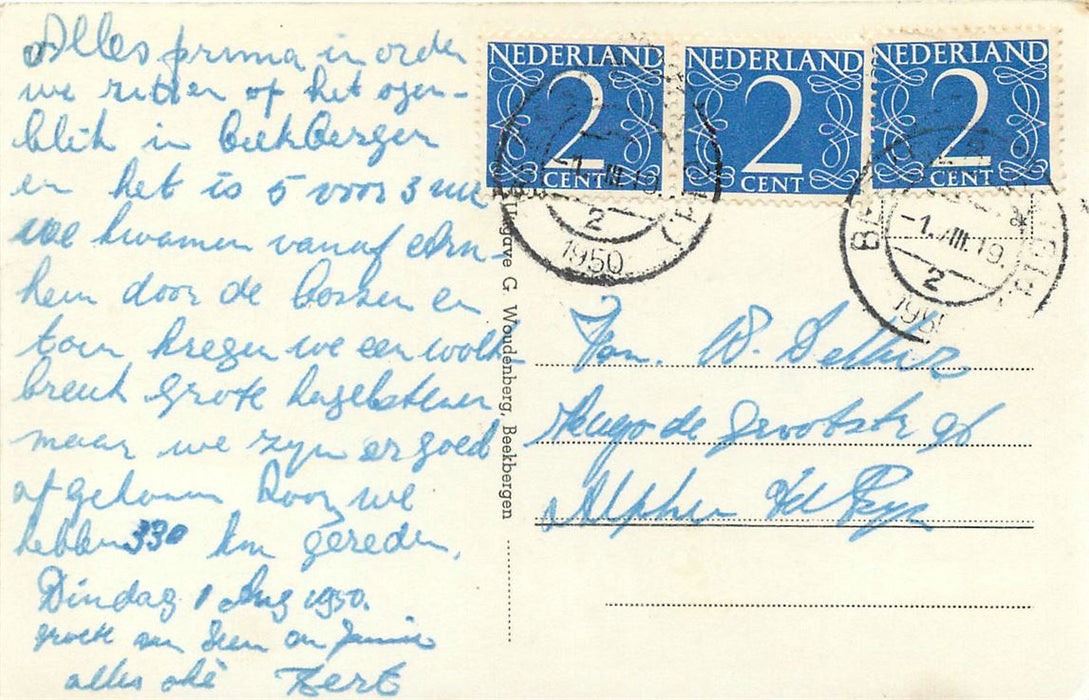 Alles prima in orde
we zitten op het ogen-
blik in Beekbergen
en het is 5 voor 3 uur
we kwamen vanaf Arn-
hem door de bossen en
toen kregen we een wolk
breuk grote hagelstenen
maar we zijn er goed
af gekomen hoor, we
hebben 330 km gereden.
Dindag 1 Aug 1950.
groete van Leen en Jannie
alles oké Bert
NEDERLAND
2
CENT
NEDERLAND
2
CENT
NEDERLAND
2
CENT
-1.VIII.19
2
1950
-1.VIII.19.
2
Uitgave G. Woudenberg, Beekbergen
Fam. W.
Hugo de Grootstr
Alphen a/d Rijn